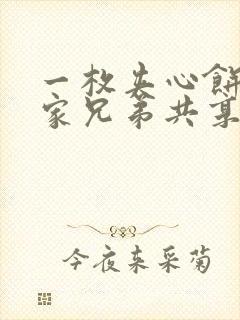 一枚夹心餅
家兄弟共某
今夜来采菊